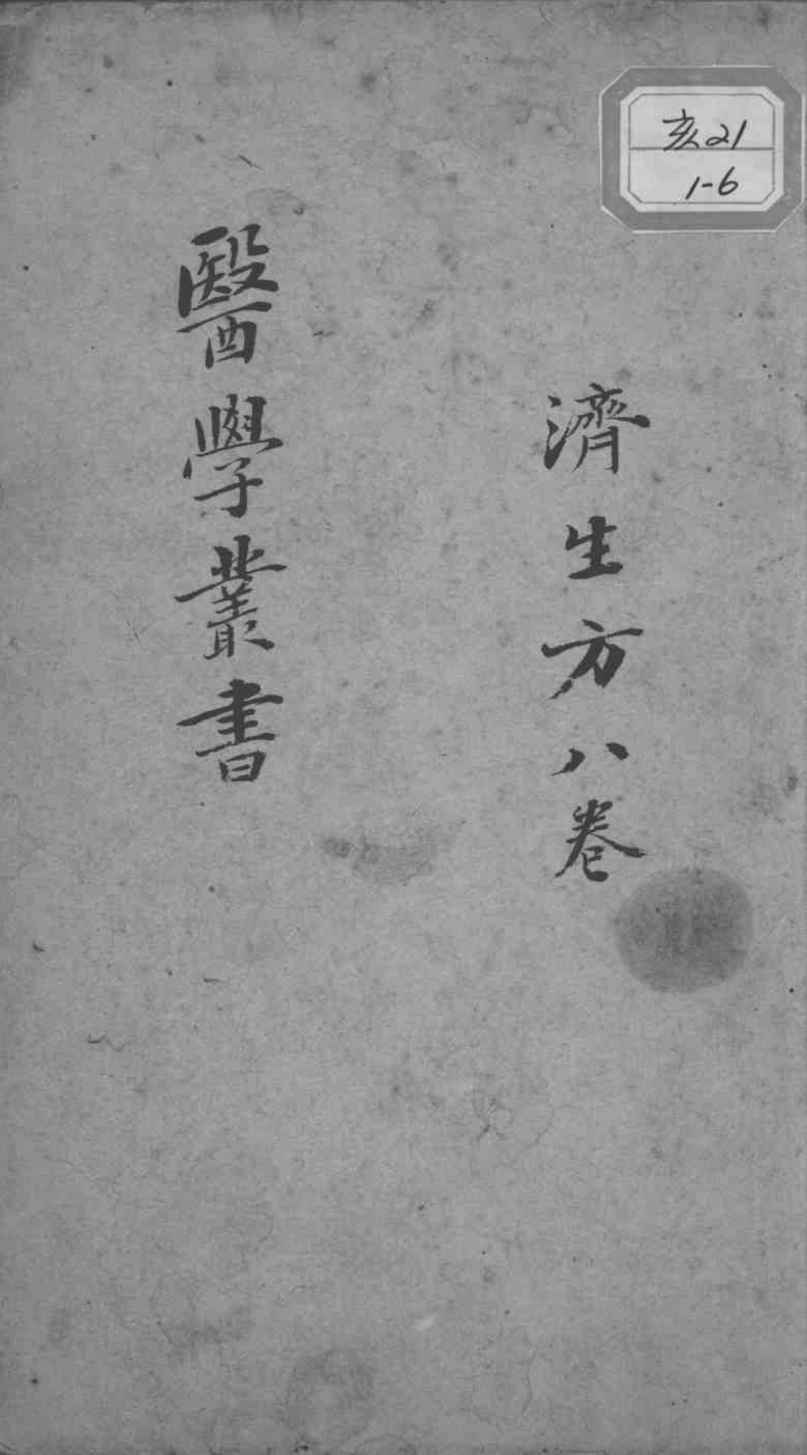 亥21
1-6
濟生方八卷
醫學叢書